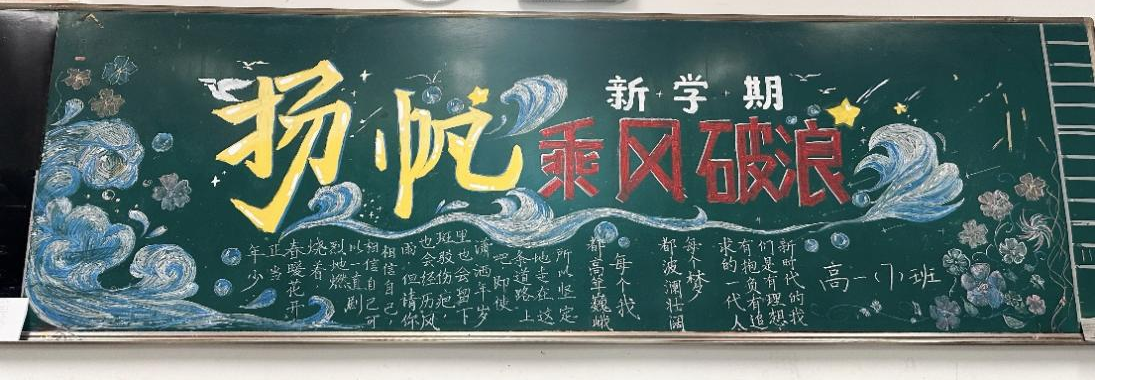 扬帆
新学期
乘风破浪
高一(7)班
新时代的我
们是有理想
有抱负有追
求的一代人
每个梦
都波澜壮阔
每个我
都高耸巍峨
所以坚定
地走在这
条道路上
吧,即使
潇洒年岁
里也会留下
斑驳伤疤,
也会经历风
雨,但请你
相信自己,
相信自己可
以一直剧
烈地燃
烧着.
春暖花开
正当
年少